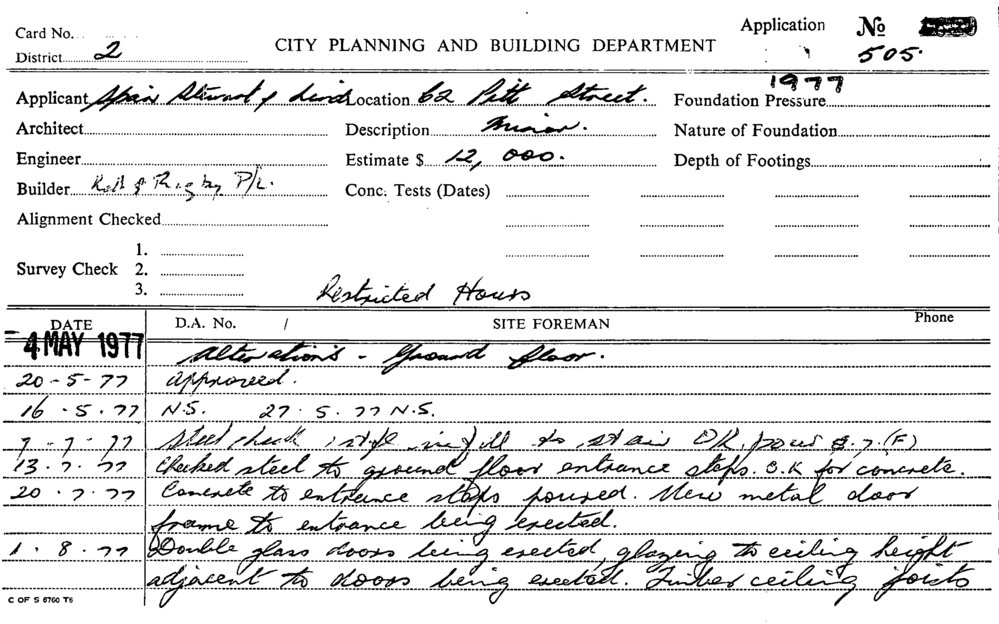 Card No.
Application No
District 2
CITY PLANNING AND BUILDING DEPARTMENT
505.
1977
Applicant Spain Stewart & Location 62 Pitt Street.
Foundation Pressure
Architect
Description Minor.
Nature of Foundation
Engineer
Estimate $ 12,000.
Depth of Footings
Builder Kell & Rigby P/L.
Conc. Tests (Dates)
Alignment Checked
Survey Check
1.
2.
3.
Restricted Hours
DATE
D.A. No. /
SITE FOREMAN
Phone
-4 MAY 1977
Alterations - Ground floor.
20-5-77 Approved.
16.5.77 N.S. 27.5.77 N.S.
7-7-77 Steel check infill to stair OK pour 8.7.(F)
13.7.77 Checked steel to ground floor entrance steps. O.K for concrete.
20.7.77 Concrete to entrance steps poured. New metal door
frame to entrance being erected.
1.8.77 Double glass doors being erected, glazing to ceiling height
adjacent to doors being erected. Timber ceiling joists
C OF S 6760 T6